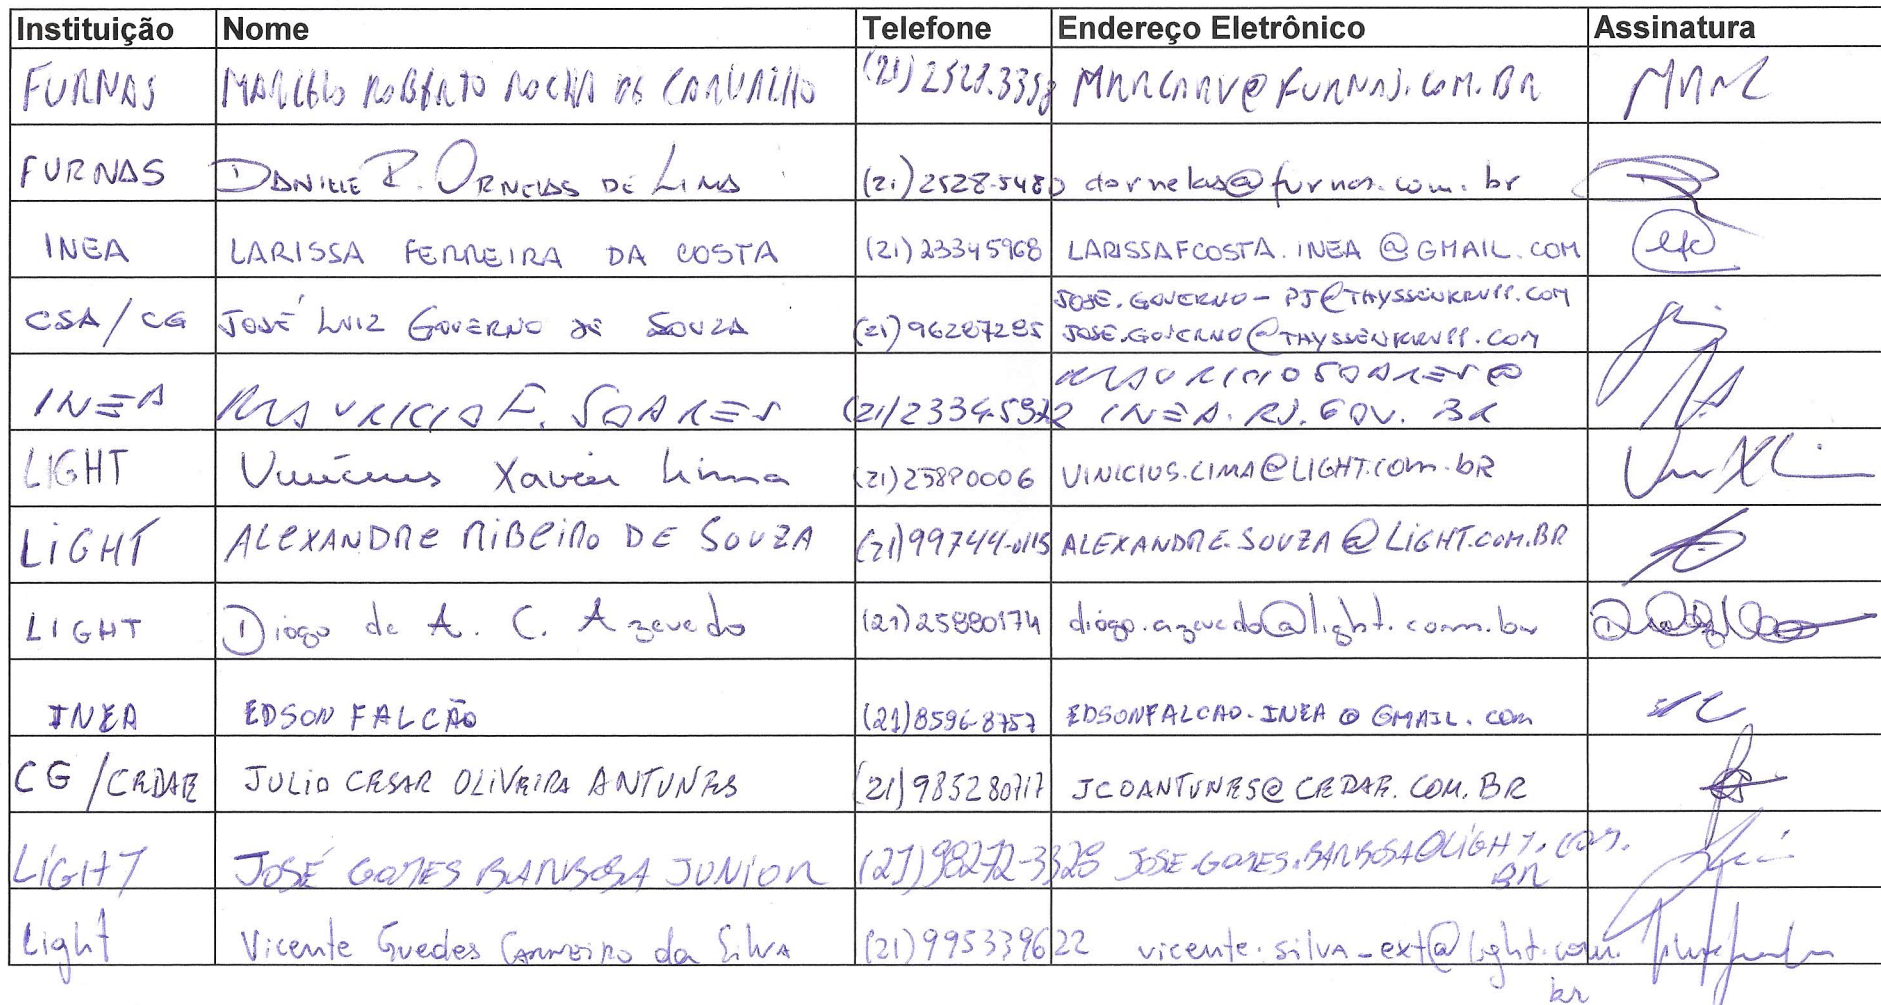 Instituição Nome Telefone Endereço Eletrônico Assinatura
FURNAS MARCELO ROBERTO ROCHA DE CARVALHO (21) 2528.3358 MARCARV@FURNAS.COM.BR
FURNAS DANIELE R. ORNELAS DE LIMA (21) 2528-5480 dornelas@furnas.com.br
INEA LARISSA FERREIRA DA COSTA (21) 23345968 LARISSAFCOSTA.INEA@GMAIL.COM
JOSE.GOVERNO-PJ@THYSSENKRUPP.COM
CSA/CG JOSÉ LUIZ GOVERNO DE SOUZA (21) 96287285 JOSE.GOVERNO@THYSSENKRUPP.COM
MAURICIOSOARES@
INEA MAURICIO F. SOARES (21) 2334-5972 INEA.RJ.GOV.BR
LIGHT Vinícius Xavier Lima (21) 25890006 VINICIUS.LIMA@LIGHT.COM.BR
LIGHT ALEXANDRE RIBEIRO DE SOUZA (21) 99744-0115 ALEXANDRE.SOUZA@LIGHT.COM.BR
LIGHT Diogo de A. C. Azevedo (21) 25880174 diogo.azevedo@light.com.br
INEA EDSON FALCÃO (21) 8596-8757 EDSONFALCAO.INEA@GMAIL.COM
CG/CEDAE JULIO CESAR OLIVEIRA ANTUNES (21) 985280717 JCOANTUNES@CEDAE.COM.BR
LIGHT JOSÉ GOMES BARBOSA JUNIOR (21) 98272-3328 JOSE.GOMES.BARBOSA@LIGHT.COM.
BR
Light Vicente Guedes CARNEIRO da Silva (21) 995339622 vicente.silva_ext@light.com.
br